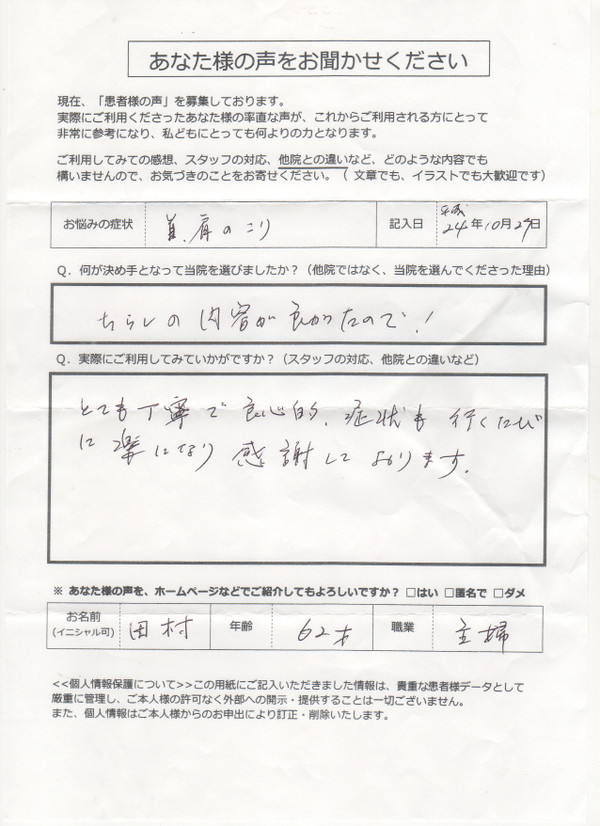 あなた様の声をお聞かせください
現在、「患者様の声」を募集しております。
実際にご利用くださったあなた様の率直な声が、これからご利用される方にとって
非常に参考になり、私どもにとっても何よりの力となります。
ご利用してみての感想、スタッフの対応、他院との違いなど、どのような内容でも
構いませんので、お気づきのことをお寄せください。（ 文章でも、イラストでも大歓迎です）
お悩みの症状 首、肩のこり 記入日 平成24年10月27日
Q．何が決め手となって当院を選びましたか？（他院ではなく、当院を選んでくださった理由）
ちらしの内容が良かったので！
Q．実際にご利用してみていかがですか？（スタッフの対応、他院との違いなど）
とても丁寧で良心的、症状も行くたび
に楽になり感謝しております。
※ あなた様の声を、ホームページなどでご紹介してもよろしいですか？ □はい □匿名で □ダメ
お名前 (イニシャル可) 田村 年齢 62才 職業 主婦
<<個人情報保護について>>この用紙にご記入いただきました情報は、貴重な患者様データとして
厳重に管理し、ご本人様の許可なく外部への開示・提供することは一切ございません。
また、個人情報はご本人様からのお申出により訂正・削除いたします。